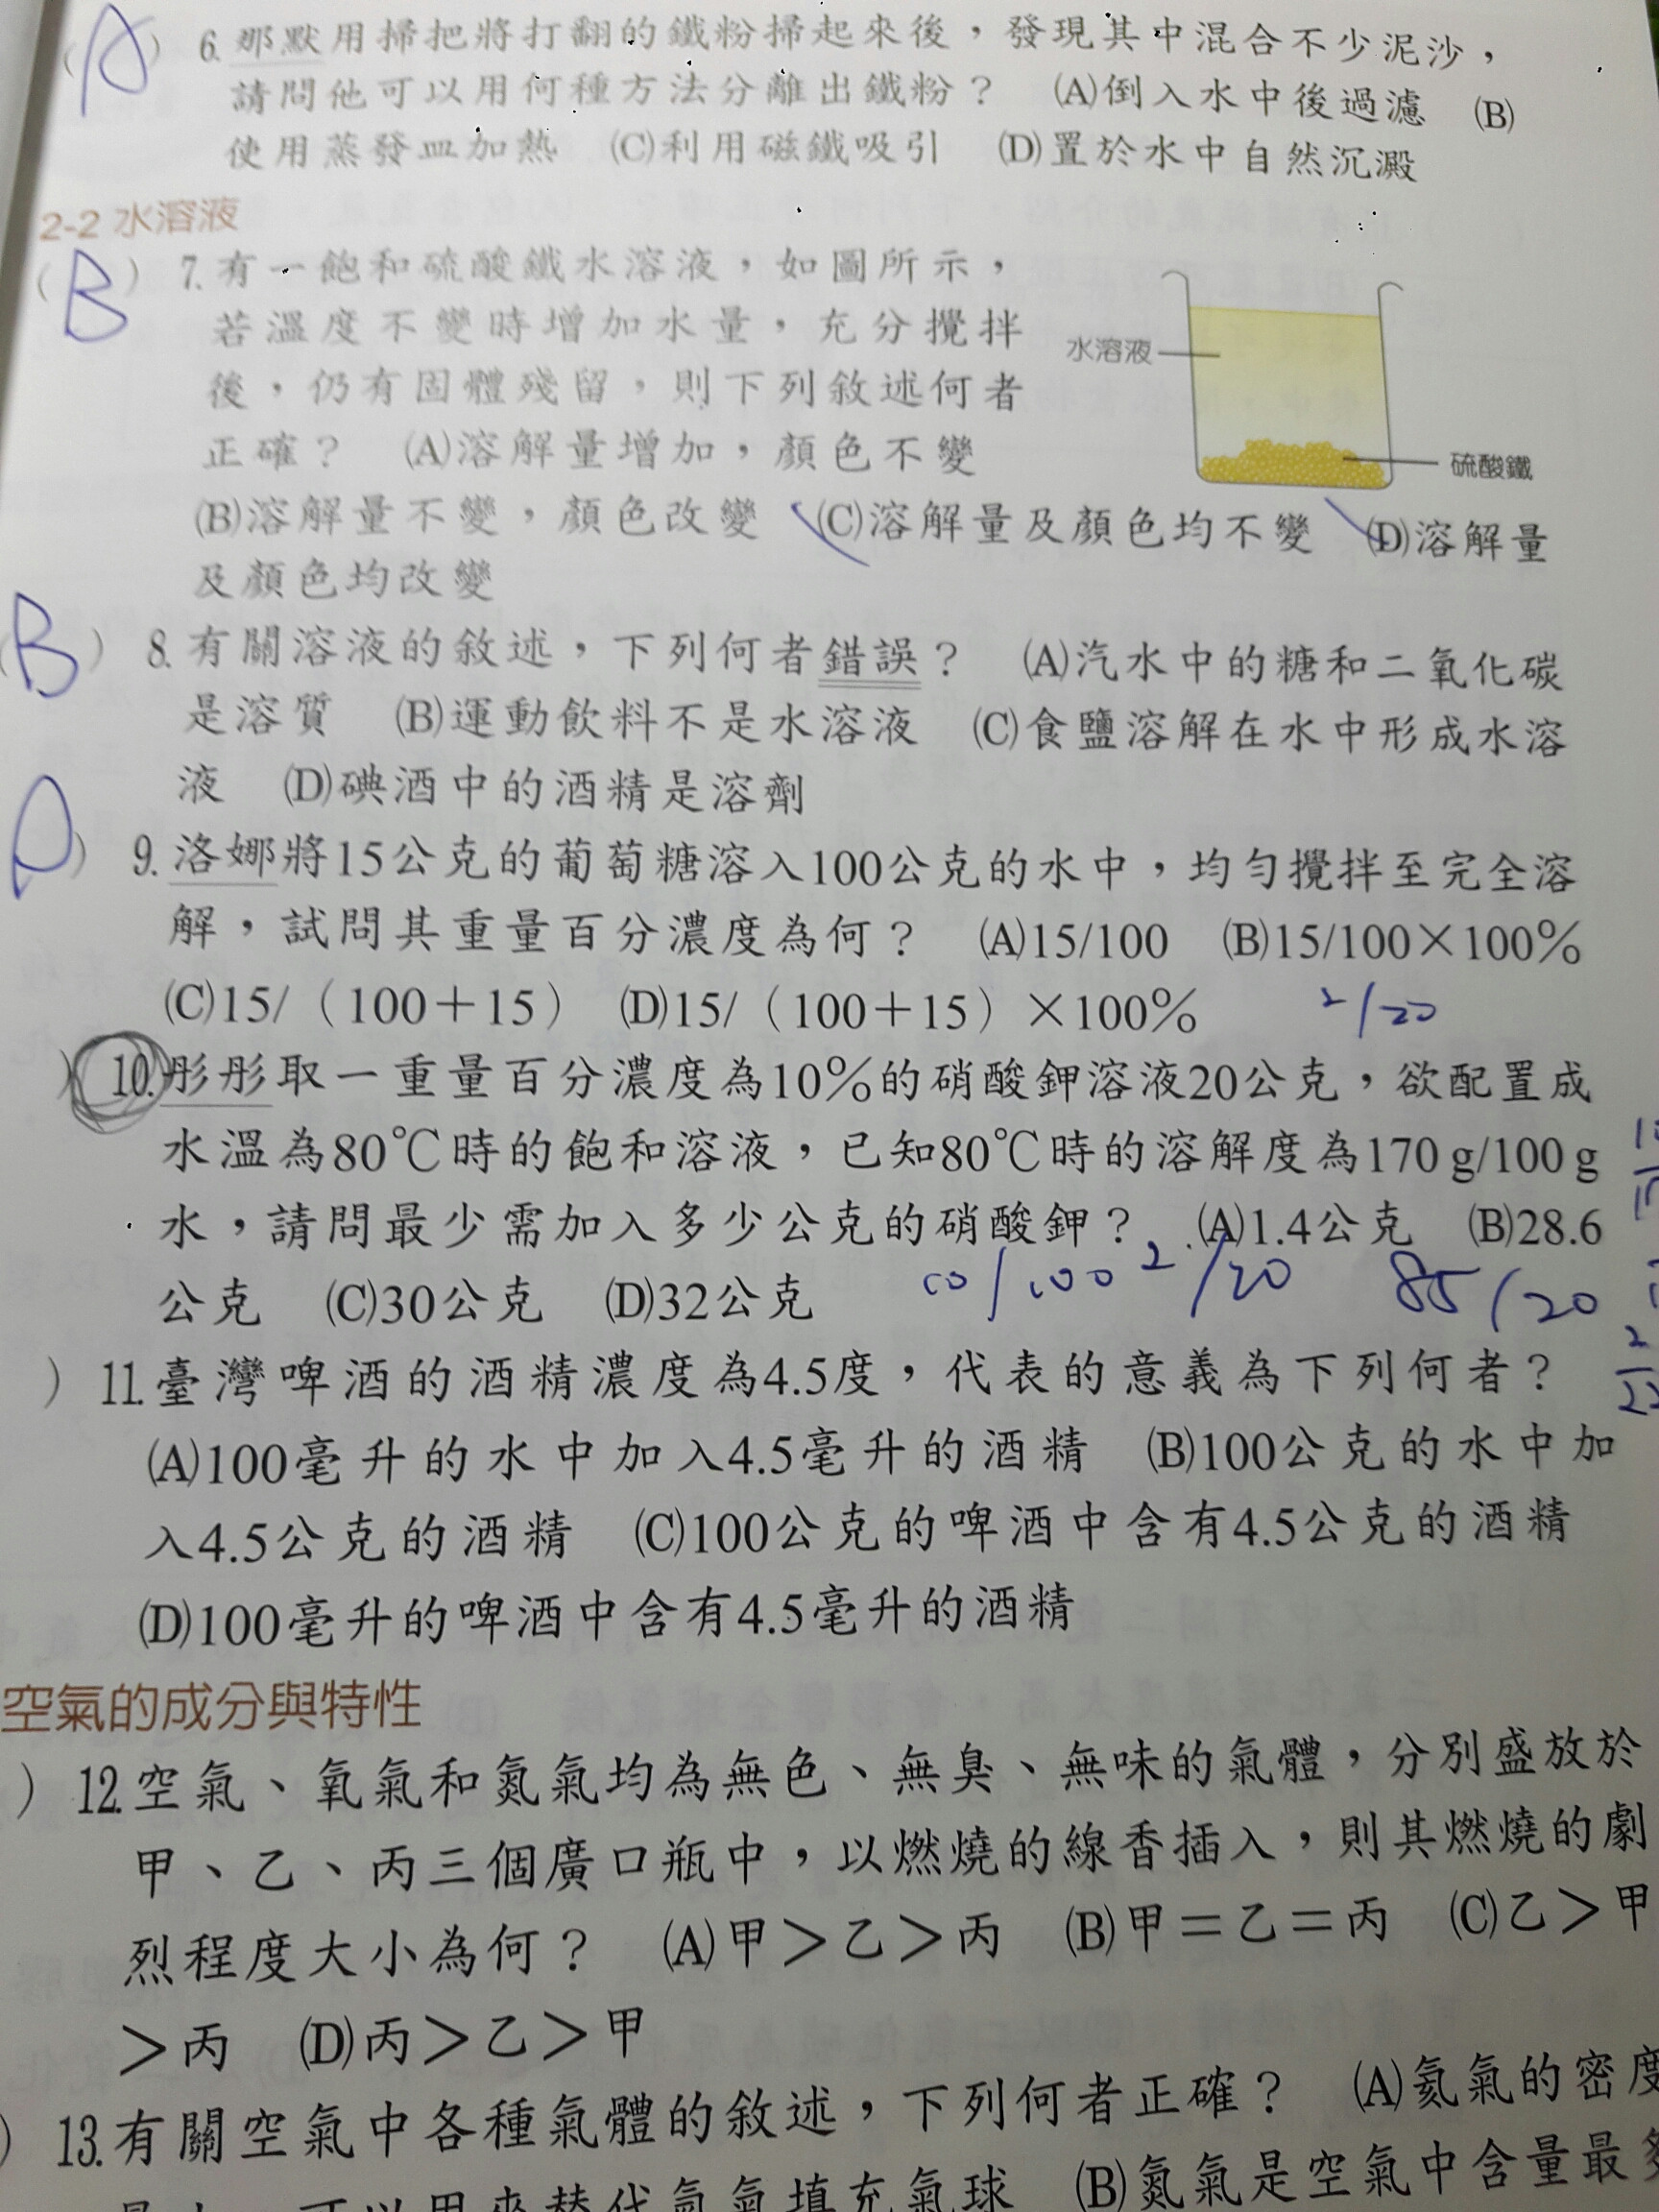 (A) 6. 那默用掃把將打翻的鐵粉掃起來後，發現其中混合不少泥沙，
請問他可以用何種方法分離出鐵粉？ (A)倒入水中後過濾 (B)
使用蒸發皿加熱 (C)利用磁鐵吸引 (D)置於水中自然沉澱
2-2 水溶液
(B) 7. 有一飽和硫酸鐵水溶液，如圖所示，
若溫度不變時增加水量，充分攪拌
後，仍有固體殘留，則下列敘述何者
正確？ (A)溶解量增加，顏色不變
(B)溶解量不變，顏色改變 (C)溶解量及顏色均不變 (D)溶解量
及顏色均改變
水溶液
硫酸鐵
(B) 8. 有關溶液的敘述，下列何者錯誤？ (A)汽水中的糖和二氧化碳
是溶質 (B)運動飲料不是水溶液 (C)食鹽溶解在水中形成水溶
液 (D)碘酒中的酒精是溶劑
D) 9. 洛娜將15公克的葡萄糖溶入100公克的水中，均勻攪拌至完全溶
解，試問其重量百分濃度為何？ (A)15/100 (B)15/100×100%
(C)15/（100＋15） (D)15/（100＋15）×100%
2/20
) 10. 彤彤取一重量百分濃度為10%的硝酸鉀溶液20公克，欲配置成
水溫為80℃時的飽和溶液，已知80℃時的溶解度為170 g/100 g
水，請問最少需加入多少公克的硝酸鉀？ (A)1.4公克 (B)28.6
公克 (C)30公克 (D)32公克
10/100 2/20 85/20
) 11. 臺灣啤酒的酒精濃度為4.5度，代表的意義為下列何者？
(A)100毫升的水中加入4.5毫升的酒精 (B)100公克的水中加
入4.5公克的酒精 (C)100公克的啤酒中含有4.5公克的酒精
(D)100毫升的啤酒中含有4.5毫升的酒精
空氣的成分與特性
) 12. 空氣、氧氣和氮氣均為無色、無臭、無味的氣體，分別盛放於
甲、乙、丙三個廣口瓶中，以燃燒的線香插入，則其燃燒的劇
烈程度大小為何？ (A)甲＞乙＞丙 (B)甲＝乙＝丙 (C)乙＞甲
＞丙 (D)丙＞乙＞甲
) 13. 有關空氣中各種氣體的敘述，下列何者正確？ (A)氦氣的密度
可以用來替代氫氣填充氣球 (B)氮氣是空氣中含量最多